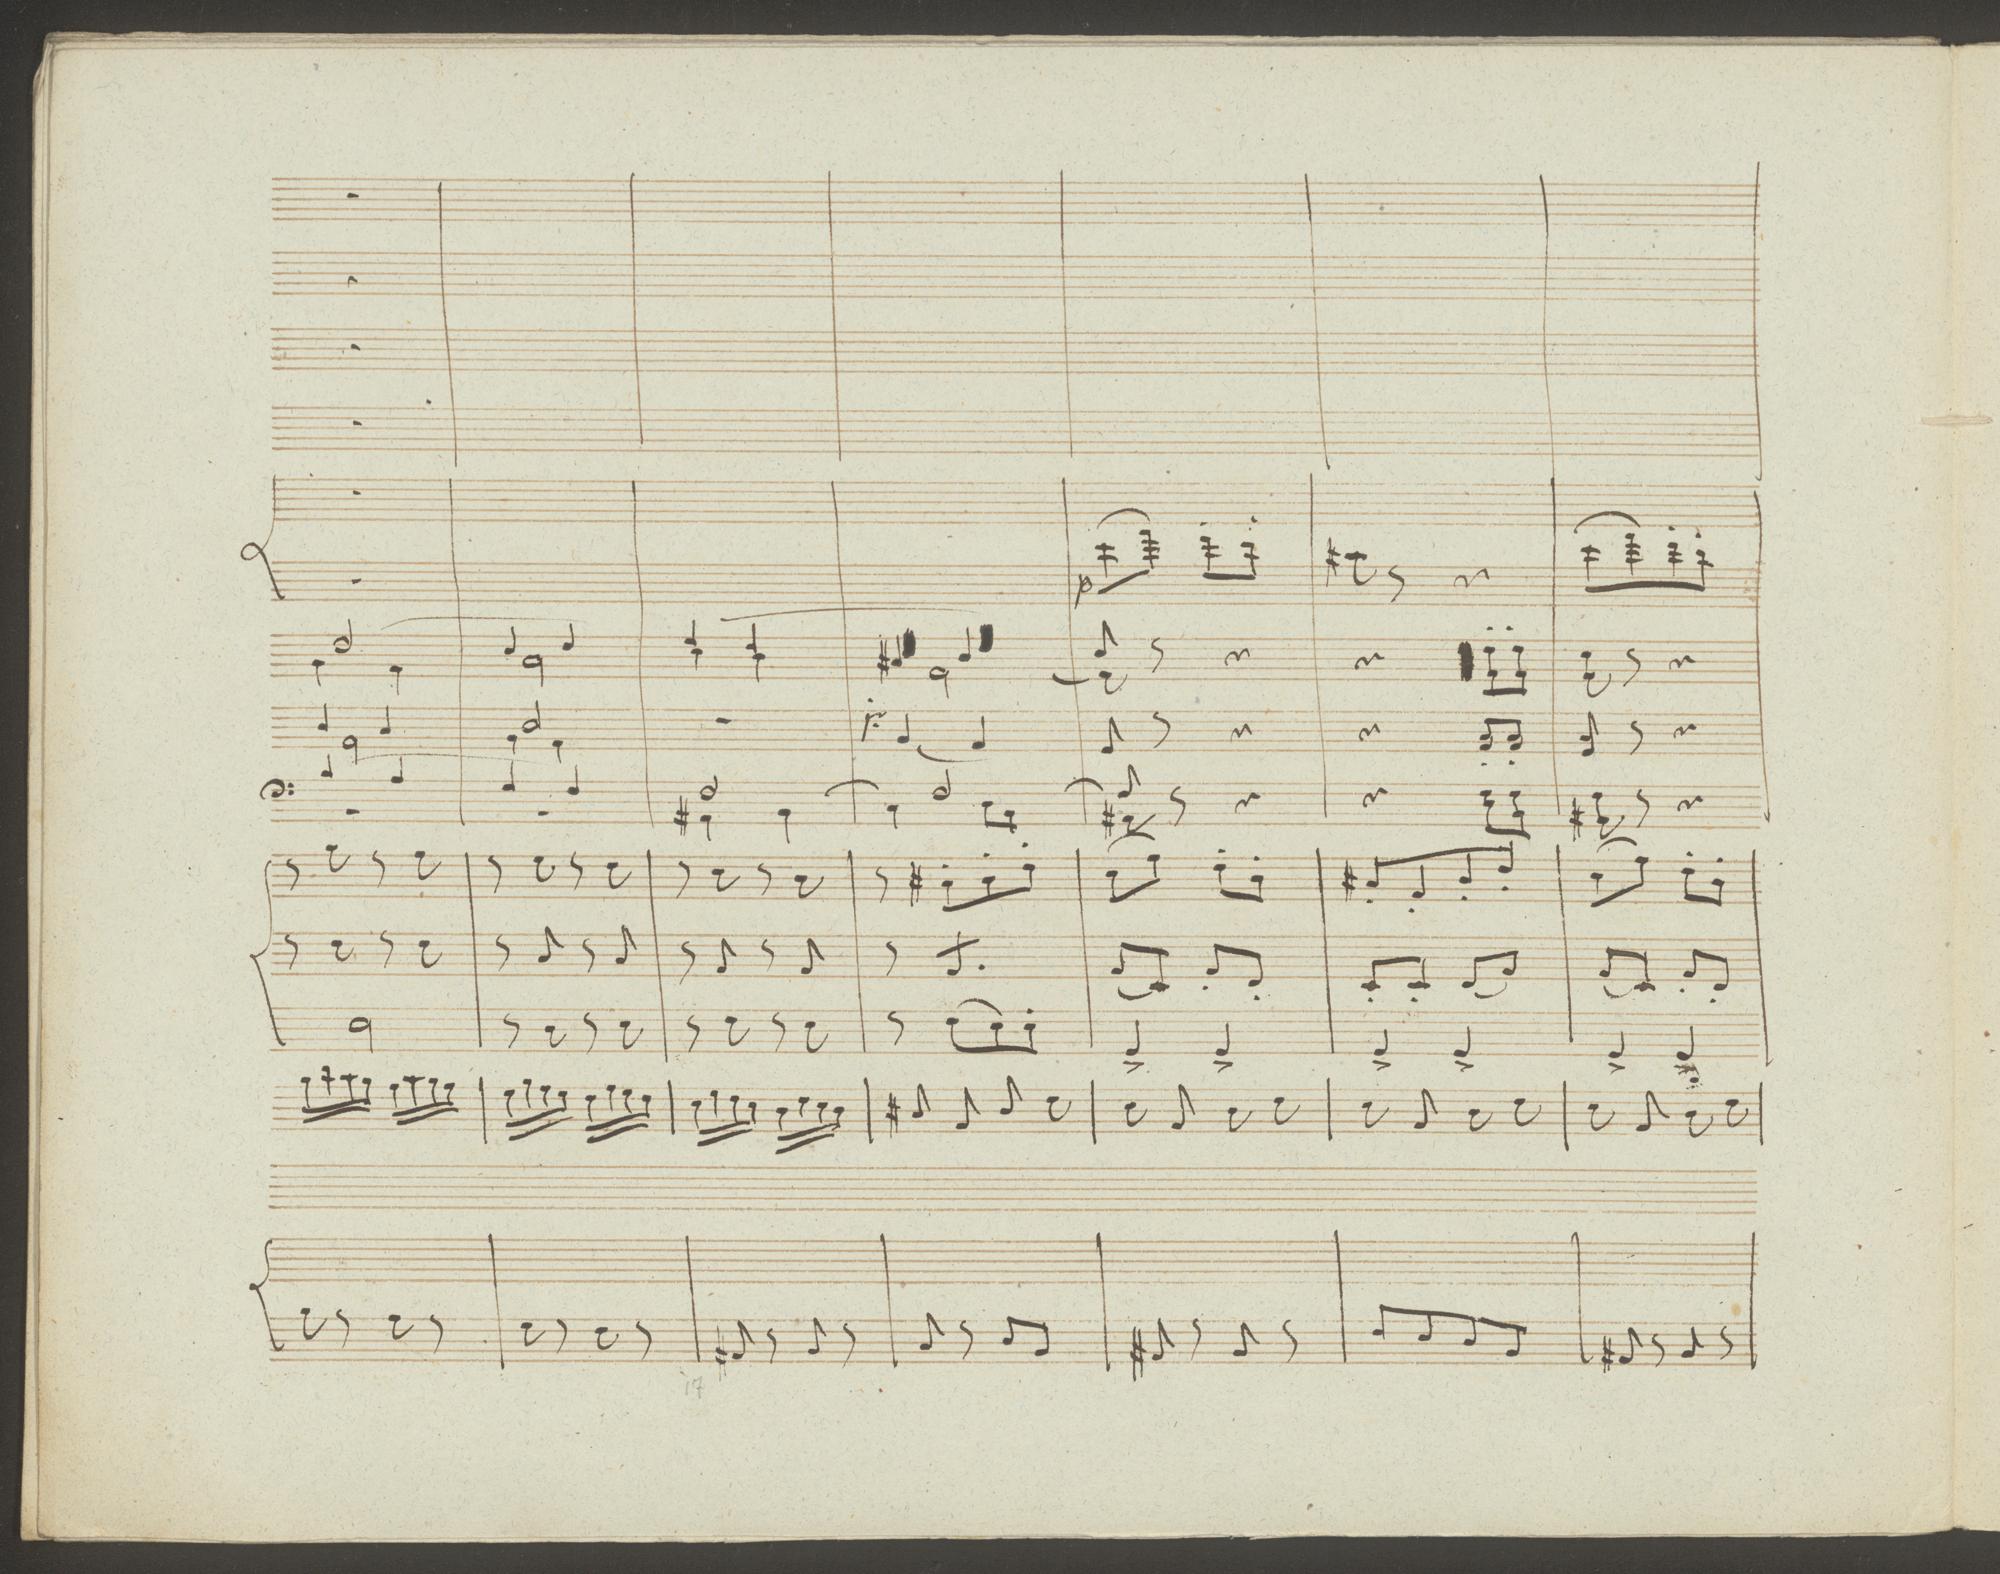 p
17